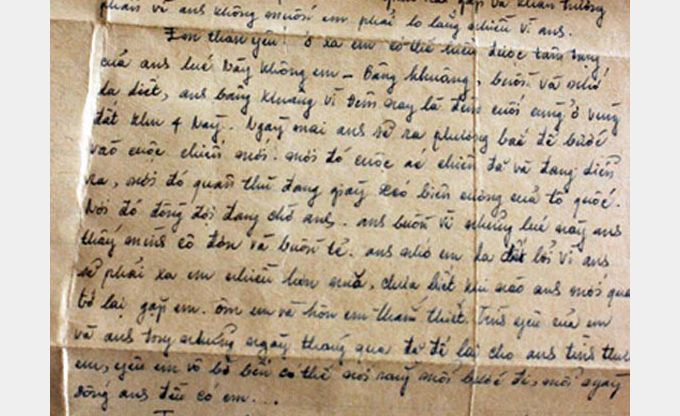 phần vì anh không muốn em phải lo lắng nhiều vì anh.
thân yêu! ở xa em có thể hiểu được tâm trạng
của anh lúc này không em – Bâng khuâng, buồn và nhớ
da diết, anh bâng khuâng vì đêm nay là đêm cuối cùng ở vùng
đất khu 4 này. Ngày mai anh sẽ ra phương bắc để bước
vào cuộc chiến mới. nơi đó cuộc ác chiến đã và đang diễn
ra, nơi đó quân thù đang giày xéo biên cương của tổ quốc.
Nơi đó đồng đội đang chờ anh. anh buồn vì những lúc này anh
thấy mình cô đơn và buồn tẻ. anh nhớ em da diết bởi vì anh
sẽ phải xa em nhiều hơn nữa, chưa biết khi nào anh mới
trở lại gặp em. ôm em và hôn em thắm thiết. Tình yêu của em
và anh trong những ngày tháng qua đã để lại cho anh tình
em, yêu em vô bờ bến có thể nói rằng mỗi bước đi, mỗi ngày
sống anh đều có em...